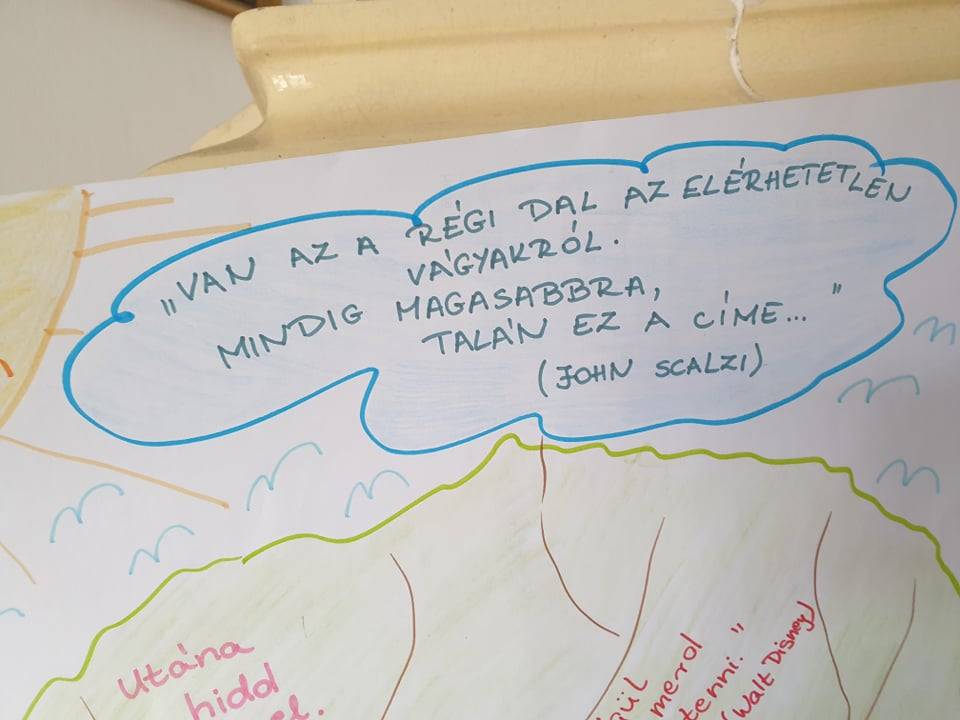 „VAN AZ A RÉGI DAL AZ ELÉRHETETLEN
VÁGYAKRÓL.
MINDIG MAGASABBRA,
TALÁN EZ A CÍME..."
(JOHN SCALZI)
Utána
hidd
merol
tenni."
(Walt Disney)